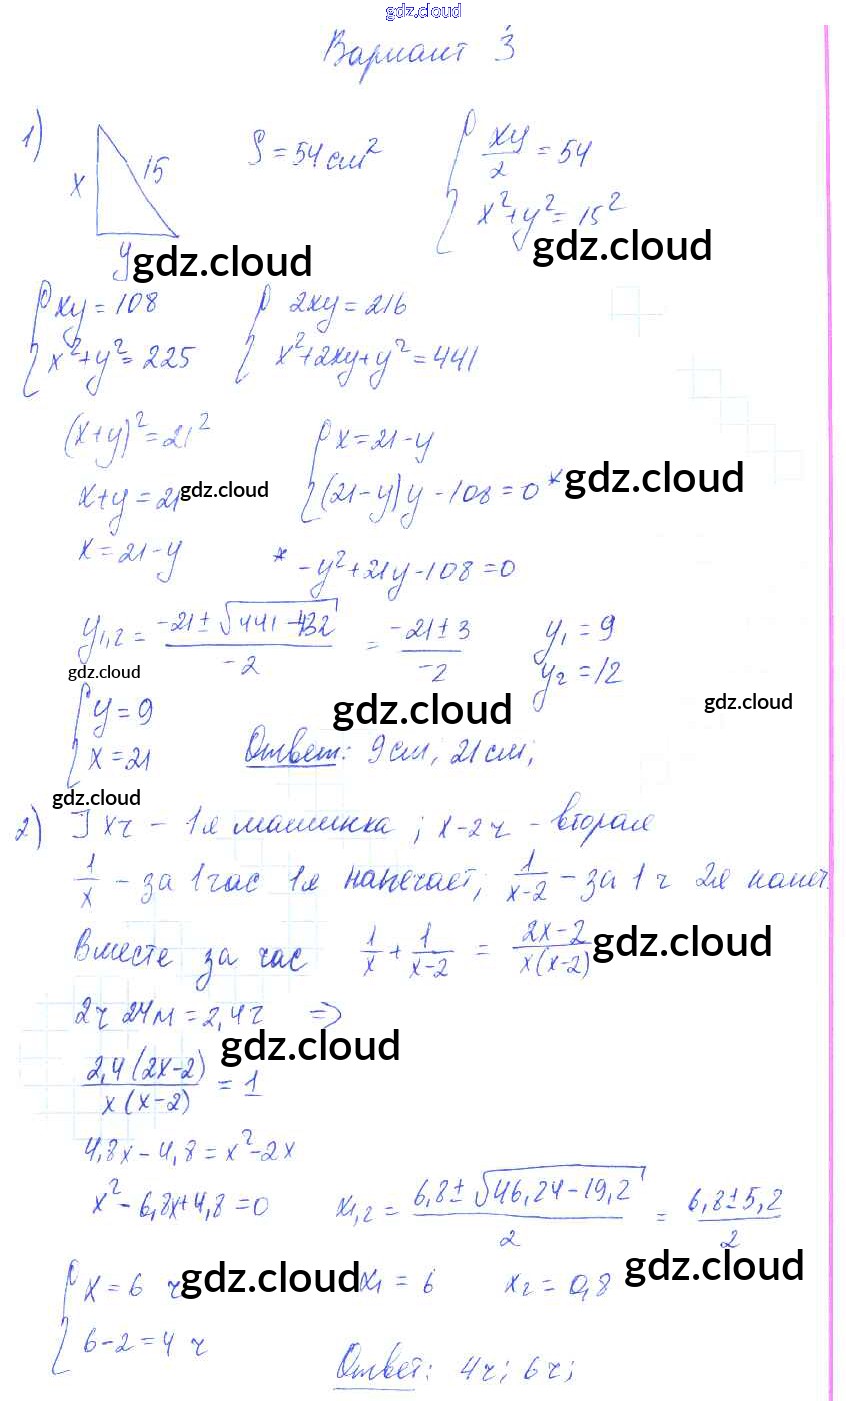 gdz.cloud
Вариант 3
1) x 15 y S = 54 см² { xy/2 = 54
x² + y² = 15²
gdz.cloud gdz.cloud
{ xy = 108 { 2xy = 216
x² + y² = 225 x² + 2xy + y² = 441
(x+y)² = 21² { x = 21 - y
x + y = 21 gdz.cloud (21-y)y - 108 = 0 * gdz.cloud
x = 21 - y * -y² + 21y - 108 = 0
y₁,₂ = (-21 ± √(441 - 432))/-2 = (-21 ± 3)/-2 y₁ = 9
y₂ = 12
gdz.cloud gdz.cloud gdz.cloud
{ y = 9
x = 21 Ответ: 9 см; 21 см;
gdz.cloud
2) ] x ч - 1я машинка ; x-2 ч - вторая
1/x - за 1 час 1я напечает; 1/(x-2) - за 1 ч 2я напеч.
Вместе за час 1/x + 1/(x-2) = (2x-2)/(x(x-2)) gdz.cloud
2ч 24м = 2,4ч ⇒
gdz.cloud
2,4(2x-2)/(x(x-2)) = 1
4,8x - 4,8 = x² - 2x
x² - 6,8x + 4,8 = 0 x₁,₂ = (6,8 ± √(46,24 - 19,2))/2 = (6,8 ± 5,2)/2
{ x = 6 ч gdz.cloud x₁ = 6 x₂ = 0,8 gdz.cloud
6 - 2 = 4 ч
Ответ: 4ч; 6ч;